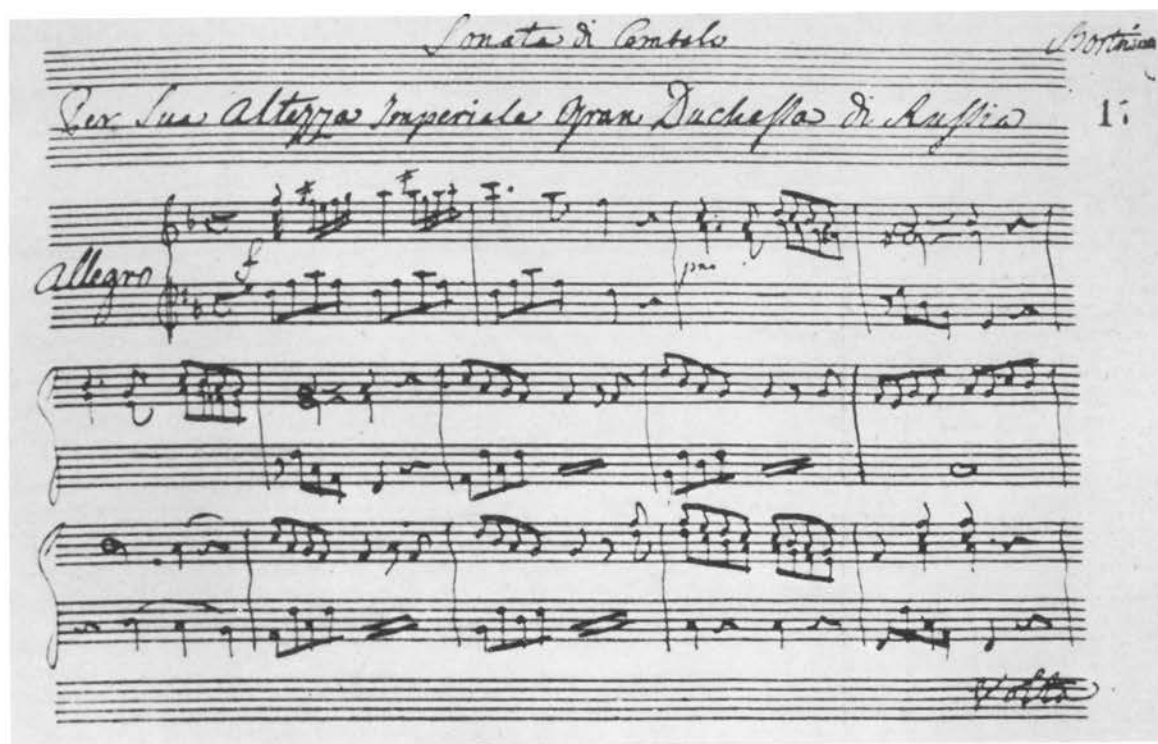 Sonata di Cembalo
Per Sua Altezza Imperiale Gran Duchessa di Russia 1:
Allegro
f
pmo
Volta